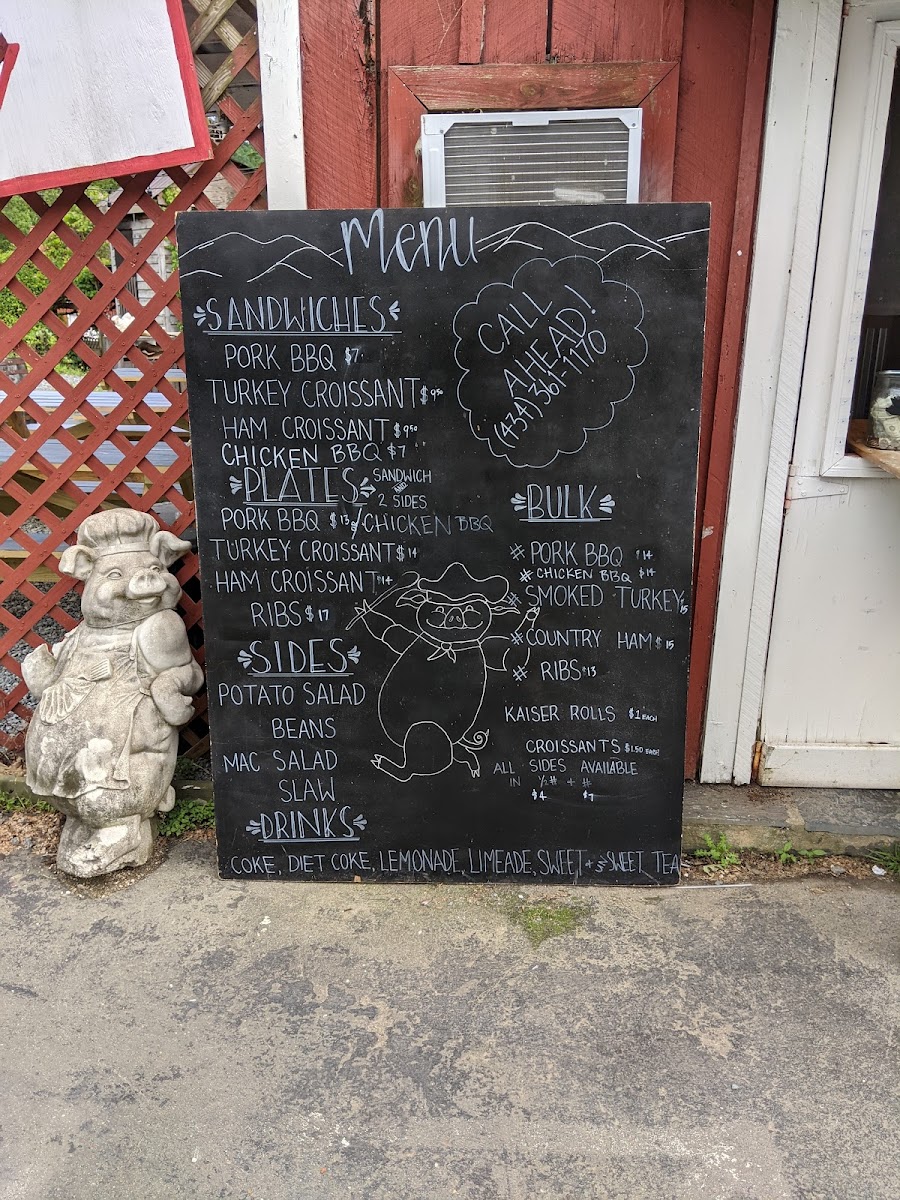 Menu
SANDWICHES
PORK BBQ $7
TURKEY CROISSANT $9.50
HAM CROISSANT $9.50
CHICKEN BBQ $7
CALL
AHEAD!
(434) 361-1170
PLATES SANDWICH AND 2 SIDES
PORK BBQ $13 / CHICKEN BBQ
TURKEY CROISSANT $14
HAM CROISSANT $14
RIBS $17
SIDES
POTATO SALAD
BEANS
MAC SALAD
SLAW
BULK
# PORK BBQ $14
# CHICKEN BBQ $14
# SMOKED TURKEY 15
# COUNTRY HAM $15
# RIBS $13
KAISER ROLLS $1 EACH
CROISSANTS $1.50 EACH
ALL SIDES AVAILABLE
IN ½# + #
$4 $7
DRINKS
COKE, DIET COKE, LEMONADE, LIMEADE, SWEET + SWEET TEA